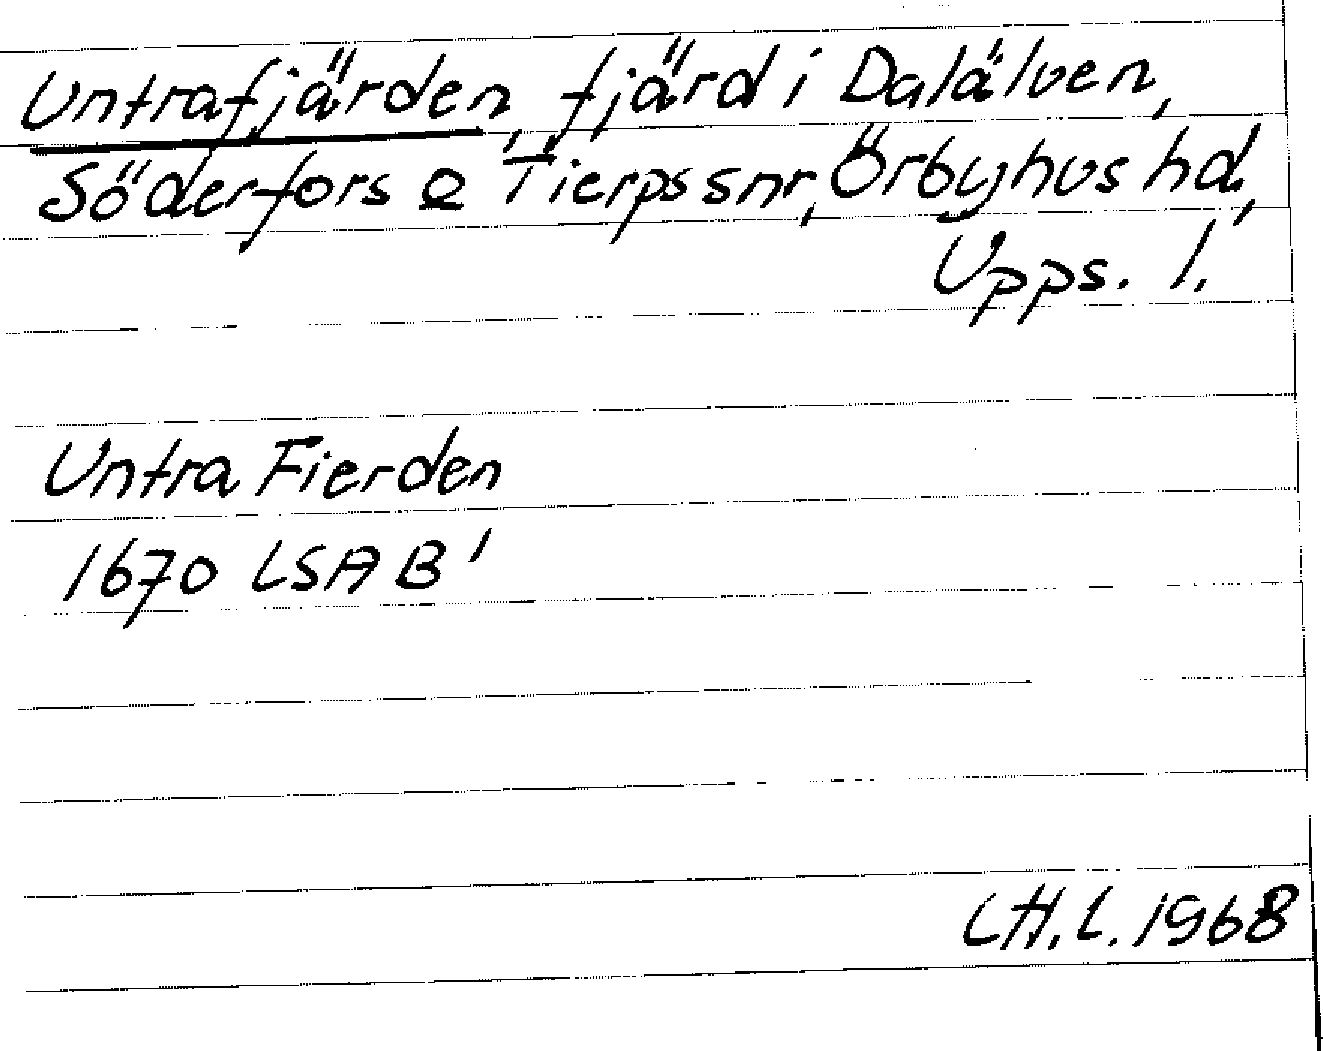 Untrafjärden, fjärd i Dalälven,
Söderfors o Tierps snr, Örbyhus hd,
Upps. l.
Untra Fierden
1670 LSA B'
CH.L. 1968